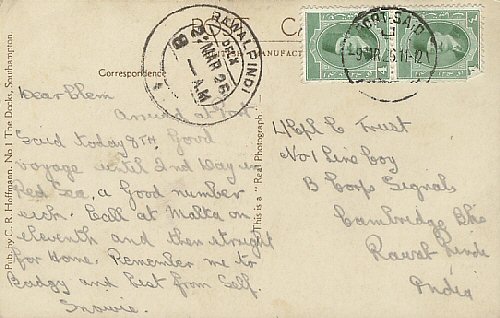 POST CA
RAWALPINDI
22 MAR 26
8 - A.M
PORT SAID
9 MR 26. 11-12
MANUFACTUR
Correspondence
Pub. by C. R. Hoffmann, No. 1 The Docks, Southampton.
This is a "Real Photograph"
Dear Clem
Arrived at Port
Said today 8TH. Good
voyage until 2nd Day in
Red Sea, a Good number
sick. Call at Malta on
eleventh and then straight
for Home. Remember me to
Padgy and best from Self.
Snowie.
L/Cpl C Trust
No 1 Line Coy
B Corps Signals
Cambridge Bks
Rawal Pindi
India